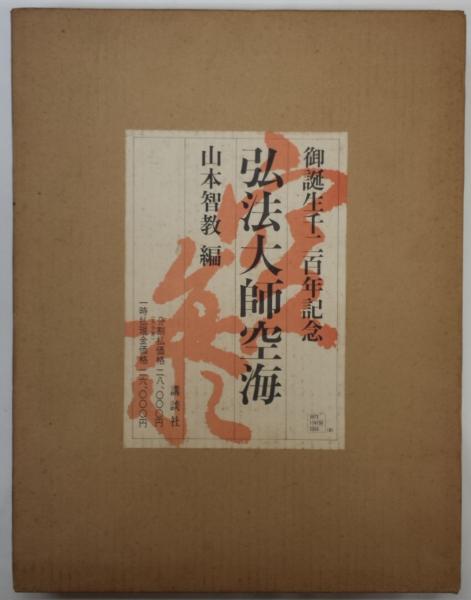 御誕生千二百年記念
弘法大師空海
山本智教 編
講談社
分割払価格 二八、〇〇〇円
一時払現金価格 二六、〇〇〇円